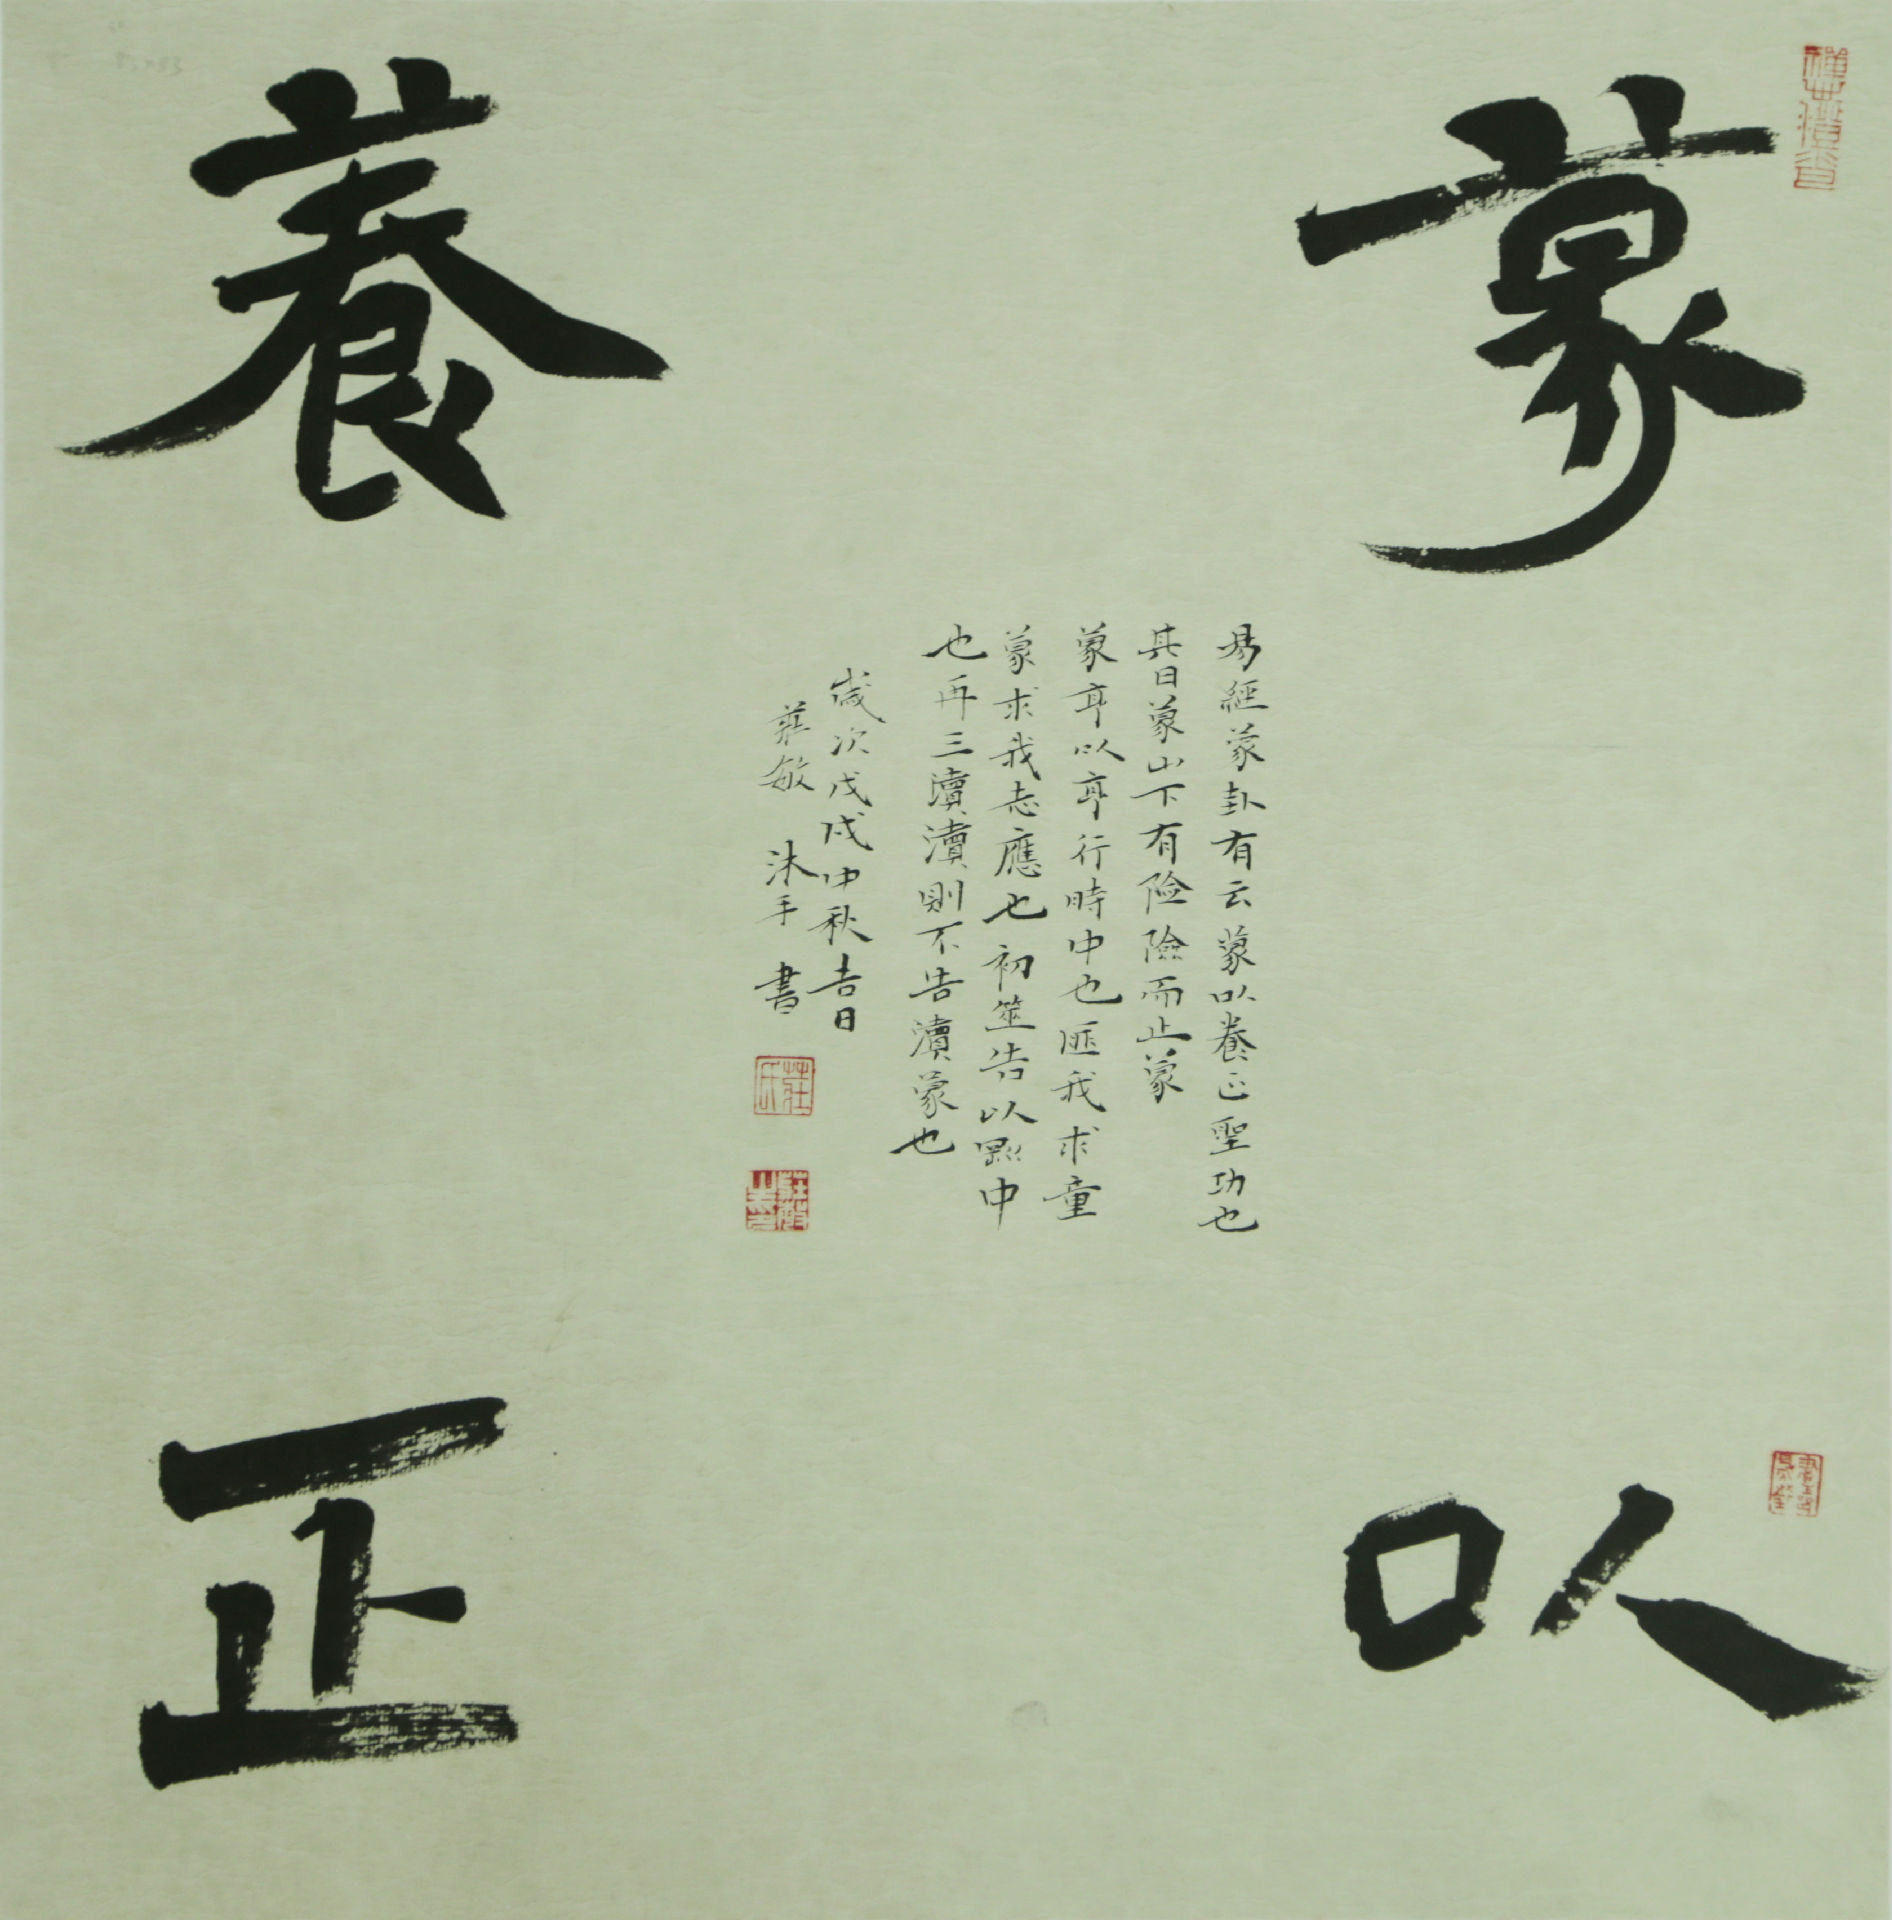 蒙以
養正
易經蒙卦有云蒙以養正聖功也
其曰蒙山下有險險而止蒙
蒙亨以亨行時中也匪我求童
蒙求我志應也初筮告以剛中
也再三瀆瀆則不告瀆蒙也
歲次戊戌中秋吉日
莊敏 沐手 書
莊氏